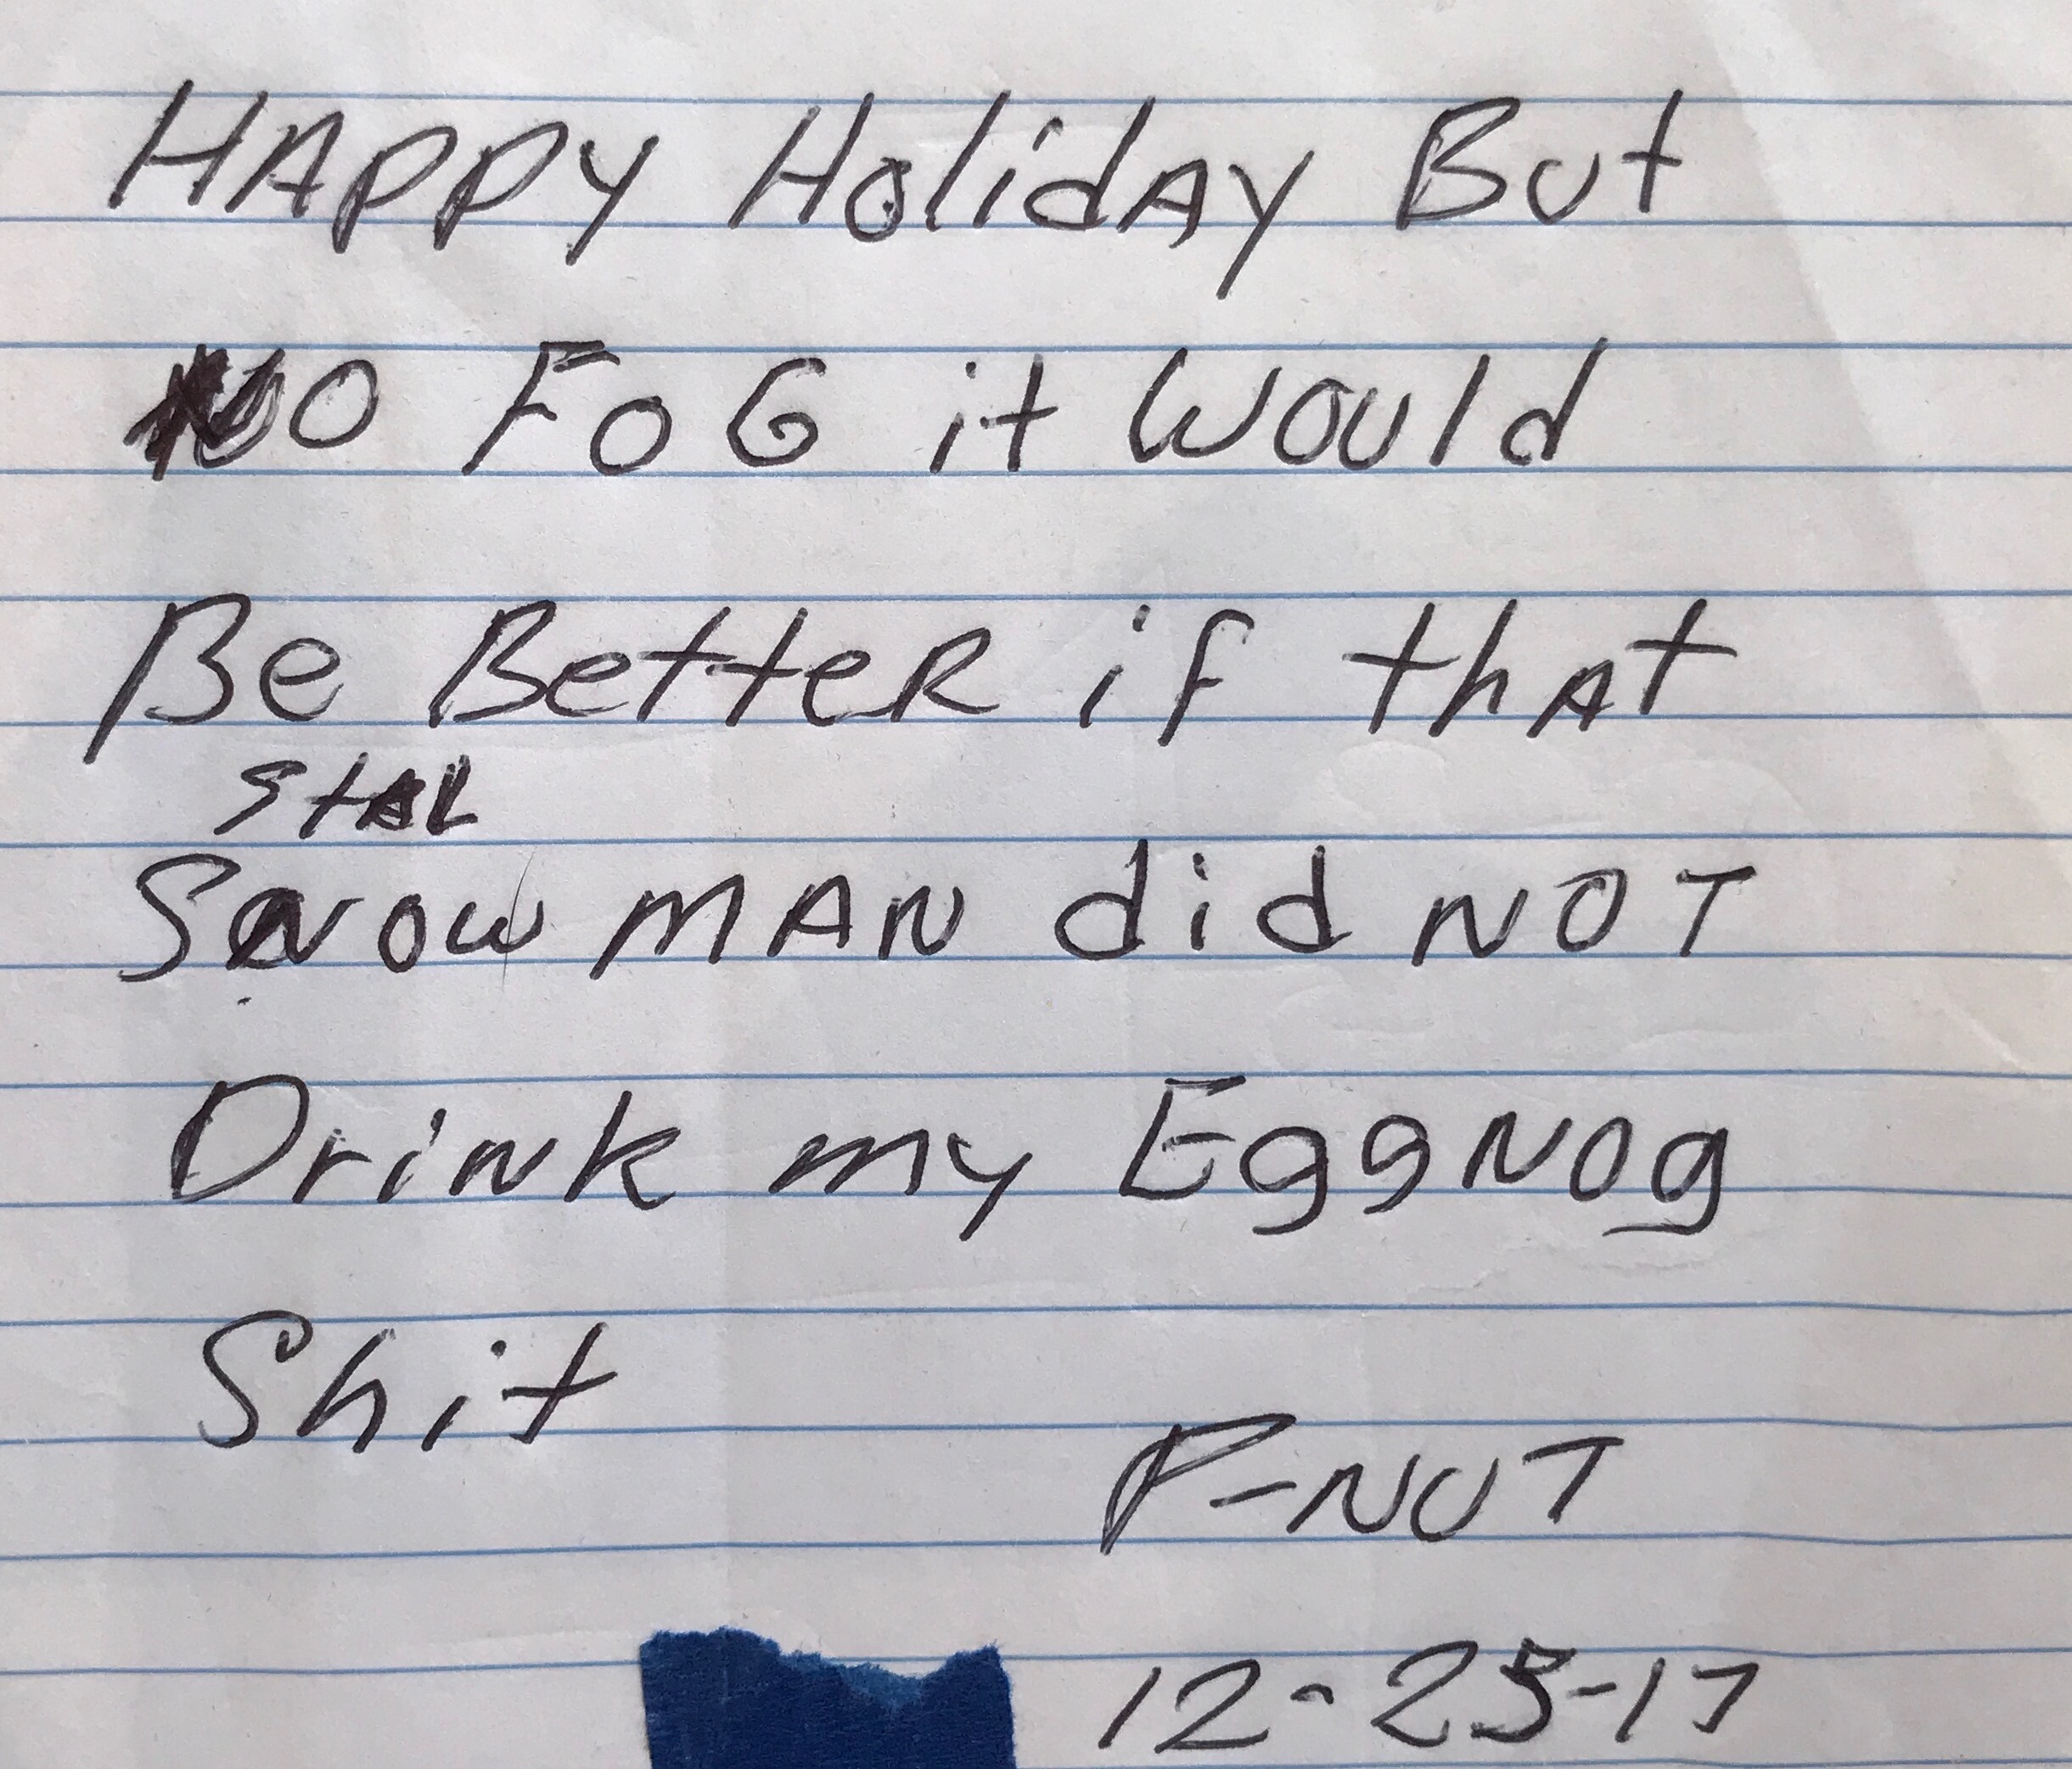 HAPPY HoliDAY But
NO FOG it Would
Be BetteR if thAt
SNOW MAN did NOT
Drink my EggNog
Shit
P-NUT
12-25-17